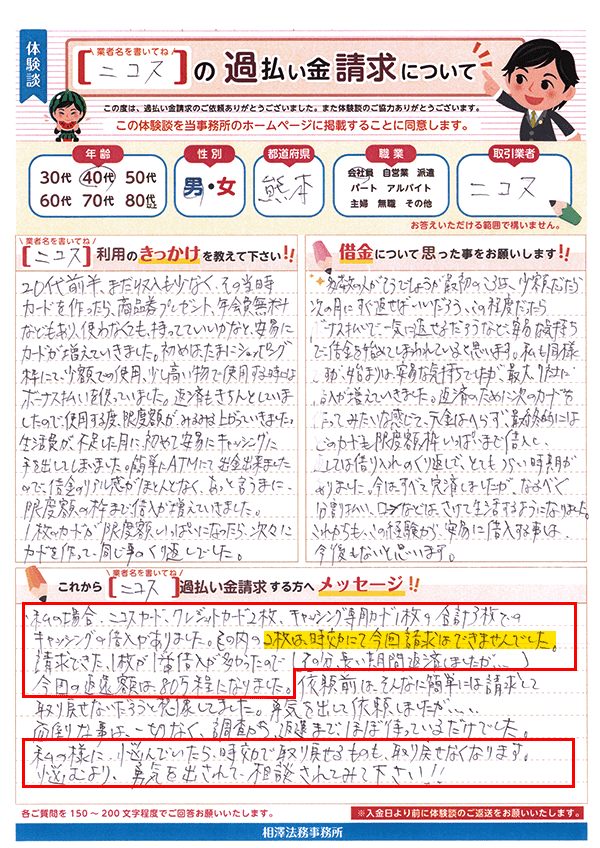 体験談
業者名を書いてね
[ニコス]の過払い金請求について
この度は、過払い金請求のご依頼ありがとうございました。また体験談のご協力ありがとうございます。
この体験談を当事務所のホームページに掲載することに同意します。
年齢
30代 40代 50代
60代 70代 80代以上
性別
男・女
都道府県
熊本
職業
会社員 自営業 派遣
パート アルバイト
主婦 無職 その他
取引業者
ニコス
お答えいただける範囲で構いません。
業者名を書いてね
[ニコス]利用のきっかけを教えて下さい!!
20代前半、まだ収入も少なく、その当時
カードを作ったら、商品券プレゼント、年会費無料
などもあり、使わなくも、持っていていいかなと、安易に
カードが増えていきました。初めは、たまにショッピング
枠にて、少額での使用、少し高い物で使用する時には
ボーナス払いを使っていました。返済もきちんとしていま
したので使用する度、限度額が、みるみる上がっていきました。
生活費が、不足した月に、初めて安易にキャッシングに
手を出してしまいました。簡単にATMにて出金出来ました
ので、借金のリアル感がほとんどなく、あっと言うまに、
限度額の枠まで借入が増えていきました。
1枚のカードが限度額いっぱいになったら、次々に
カードを作って、同じ事のくり返しでした。
借金について思った事をお願いします!!
多数の人がそうでしょうが最初の3回、少額だから
次の月にすぐ返せばいいだろう、この程度だったら
ボーナス払いで一気に返せるだろうなど、安易な気持ち
で借金を始めてしまわれていると思います。私も同様
ですが、始まりは、安易な気持ちですが、最大
借入が増えていきました。返済のために次のカードを
作ってみたいな感じで、元金はへらず、最終的には
どのカードも限度額枠いっぱいまで借入し、
しては借り入れのくり返しで、とてもつらい時期が
ありました。今はすべて完済しましたが、なるべく
分割払い、ローンなどは、さけて生活するようになりました。
これからも、この経験から、安易に借入する事は、
今後もないと思います。
業者名を書いてね
これから[ニコス]過払い金請求する方へメッセージ!!
私の場合、ニコスカード、クレジットカード2枚、キャッシング専用カード1枚の合計3枚での
キャッシングの借入がありました。その内の2枚は、時効にて今回請求はできませんでした。
請求できた、1枚が1番借入が多かったので(その分、長い期間返済しましたが…)
今回の返還額は、80万程になりました。依頼前は、そんなに簡単には請求して
取り戻せないだろうと想像してました。勇気を出して依頼しましたが、…
面倒な事は、一切なく、調査から、返還までほぼ待っているだけでした。
私の様に、悩んでいたら、時効で取り戻せるものも、取り戻せなくなります。
悩むより、勇気を出されて、相談されてみて下さい!!
各ご質問を150～200文字程度でご回答お願いいたします。
※入金日より前に体験談のご返送をお願いいたします。
相澤法務事務所